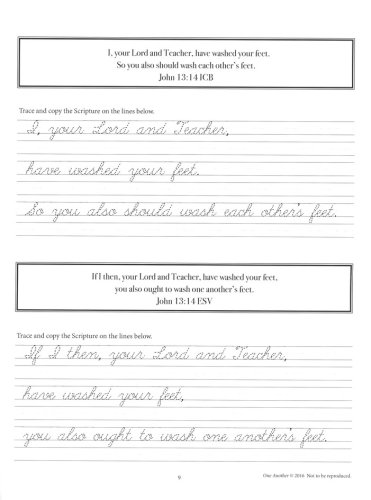 I, your Lord and Teacher, have washed your feet.
So you also should wash each other's feet.
John 13:14 ICB
Trace and copy the Scripture on the lines below.
I, your Lord and Teacher,
have washed your feet.
So you also should wash each other's feet.
If I then, your Lord and Teacher, have washed your feet,
you also ought to wash one another's feet.
John 13:14 ESV
Trace and copy the Scripture on the lines below.
If I then, your Lord and Teacher,
have washed your feet,
you also ought to wash one another's feet.
9
One Another © 2016 Not to be reproduced.